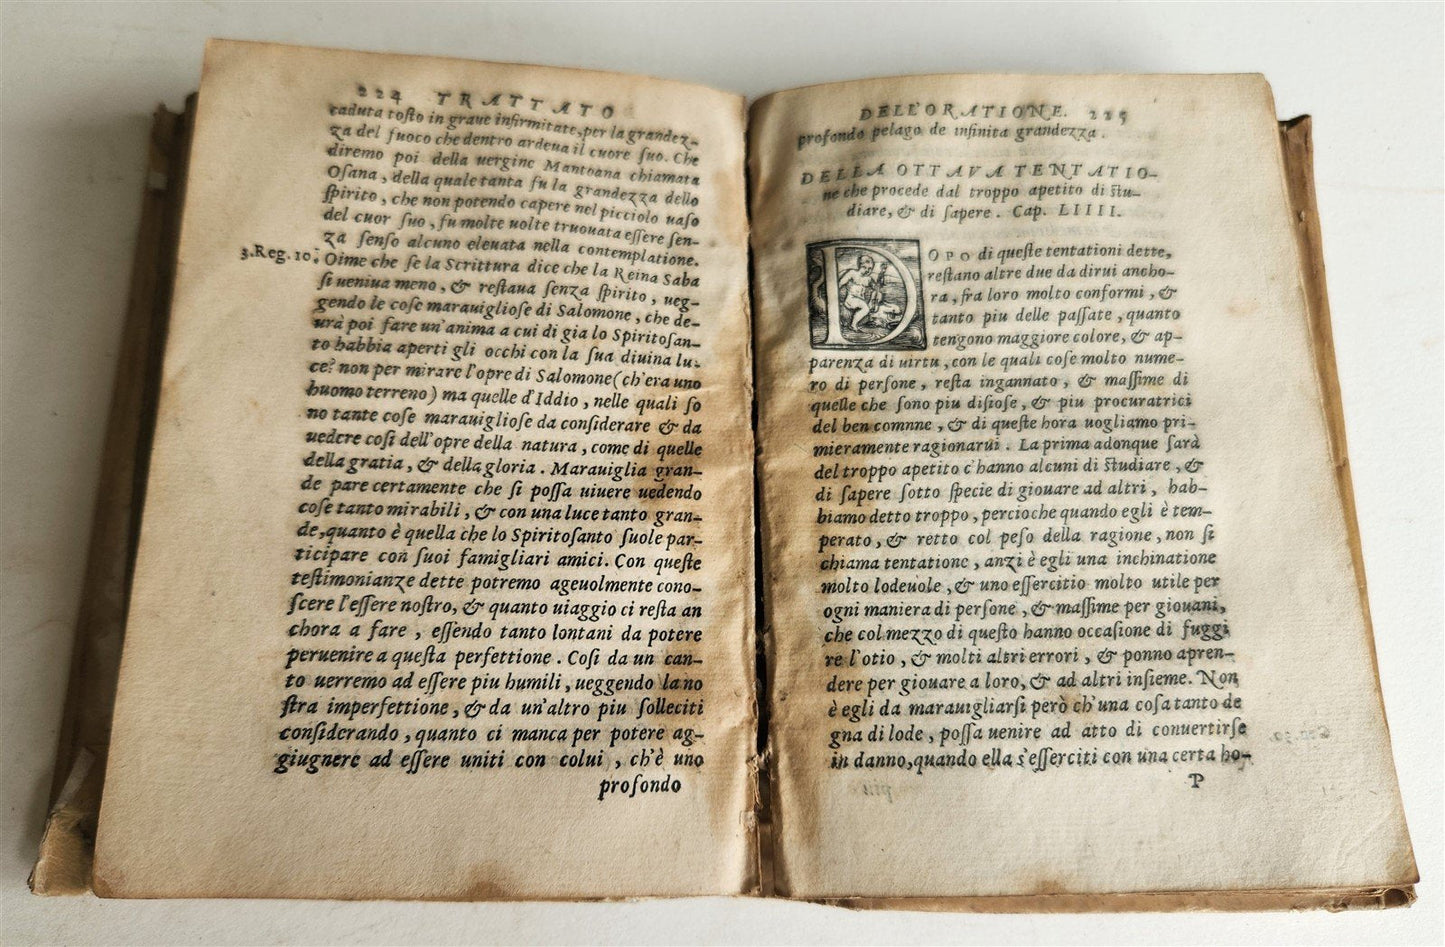 224 TRATTATO
caduta tosto in graue infirmitate, per la grandez-
za del fuoco che dentro ardeua il cuore suo. Che
diremo poi della uergine Mantoana chiamata
Osana, della quale tanta fu la grandezza dello
spirito, che non potendo capere nel picciolo uaso
del cuor suo, fu molte uolte truouata essere sen-
za senso alcuno eleuata nella contemplatione.
3. Reg. 10.
Oime che se la Scrittura dice che la Reina Saba
si ueniua meno, & restaua senza spirito, ueg-
gendo le cose marauigliose di Salomone, che de-
urà poi fare un'anima a cui di gia lo Spiritosan-
to habbia aperti gli occhi con la sua diuina lu-
ce? non per mirare l'opre di Salomone (ch'era uno
huomo terreno) ma quelle d'Iddio, nelle quali so
no tante cose marauigliose da considerare & da
uedere cosi dell'opre della natura, come di quelle
della gratia, & della gloria. Marauiglia gran-
de pare certamente che si possa uiuere uedendo
cose tanto mirabili, & con una luce tanto gran-
de, quanto è quella che lo Spiritosanto suole par-
ticipare con suoi famigliari amici. Con queste
testimonianze dette potremo ageuolmente cono-
scere l'essere nostro, & quanto uiaggio ci resta an
chora a fare, essendo tanto lontani da potere
peruenire a questa perfettione. Cosi da un can-
to uerremo ad essere piu humili, ueggendo la no
stra imperfettione, & da un'altro piu solleciti
considerando, quanto ci manca per potere ag-
giugnere ad essere uniti con colui, ch'è uno
profondo
DELL'ORATIONE. 225
profondo pelago de infinita grandezza.
DELLA OTTAVA TENTATIO-
ne che procede dal troppo apetito di stu-
diare, & di sapere. Cap. LIIII.
DOPO di queste tentationi dette,
restano altre due da dirui ancho-
ra, fra loro molto conformi, &
tanto piu delle passate, quanto
tengono maggiore colore, & ap-
parenza di uirtu, con le quali cose molto nume-
ro di persone, resta ingannato, & massime di
quelle che sono piu disiose, & piu procuratrici
del ben comnne, & di queste hora uogliamo pri-
mieramente ragionarui. La prima adonque sarà
del troppo apetito c'hanno alcuni di studiare, &
di sapere sotto specie di giouare ad altri, hab-
biamo detto troppo, percioche quando egli è tem-
perato, & retto col peso della ragione, non si
chiama tentatione, anzi è egli una inchinatione
molto lodeuole, & uno essercitio molto utile per
ogni maniera di persone, & massime per giouani,
che col mezzo di questo hanno occasione di fuggi
re l'otio, & molti altri errori, & ponno apren-
dere per giouare a loro, & ad altri insieme. Non
è egli da marauigliarsi però ch'una cosa tanto de
gna di lode, possa uenire ad atto di conuertirse
in danno, quando ella s'esserciti con una certa ho-
P